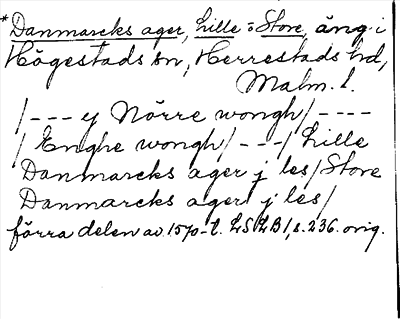 *Danmarcks ager, Lille o Store, äng i
Högestads sn, Herrestads hd,
Malm. l.
/--- y Nörre wongh/----
/ Enghe wongh/ ---/ Lille
Danmarcks ager j les/ Store
Danmarcks ager j les/
förra delen av 1570-t. LSLB1, s. 236. orig.